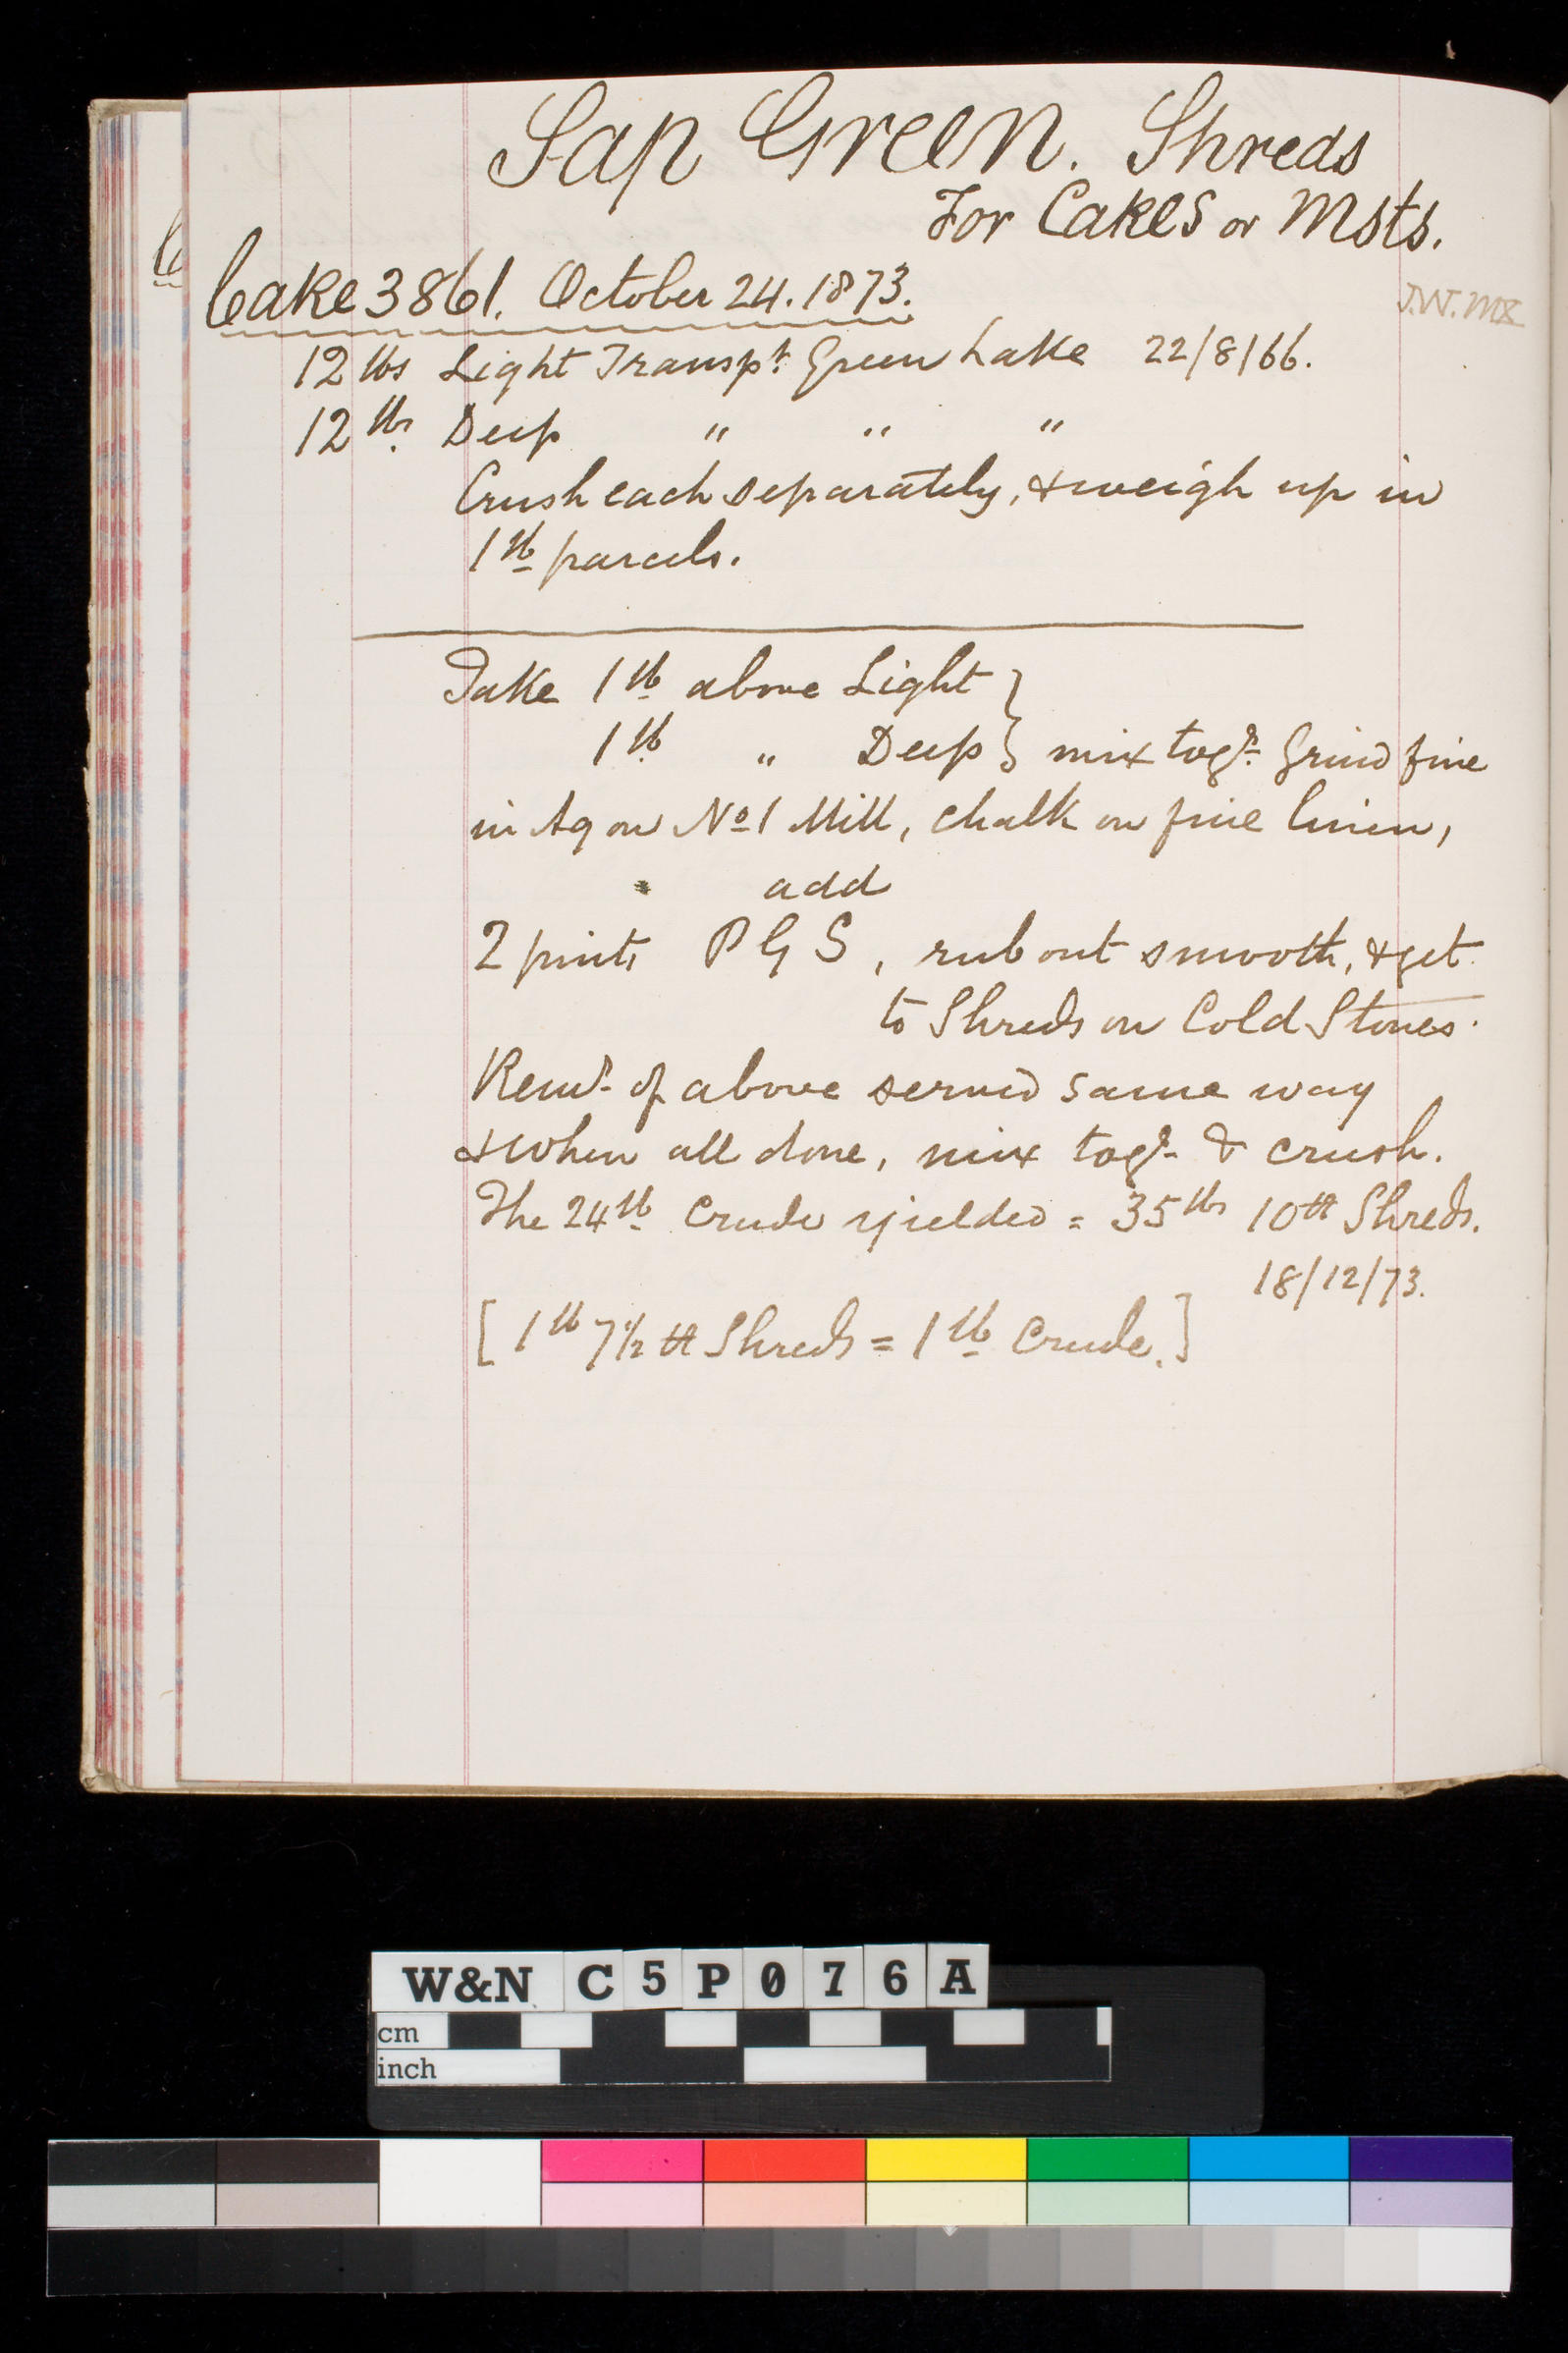 Sap Green. Shreds
For Cakes or Msts.
Cake 3861. October 24. 1873.
J.W. MX
12 lbs Light Transpt. Green Lake 22/8/66.
12 lbs. Deep " " "
Crush each separately, & weigh up in
1 lb parcels.
Take 1 lb above Light }
1 lb " Deep } mix togr. Grind fine
in Aq on No 1 Mill, chalk on fine linen,
add
2 pints P G S, rub out smooth, & get
to Shreds on Cold Stones.
Remr. of above served same way
& when all done, mix togr. & crush.
The 24 lb Crude yielded = 35 lbs 10 tt Shreds.
18/12/73.
[ 1 lb 7 1/2 tt Shreds = 1 lb Crude. ]
W&N C5P076A
cm
inch